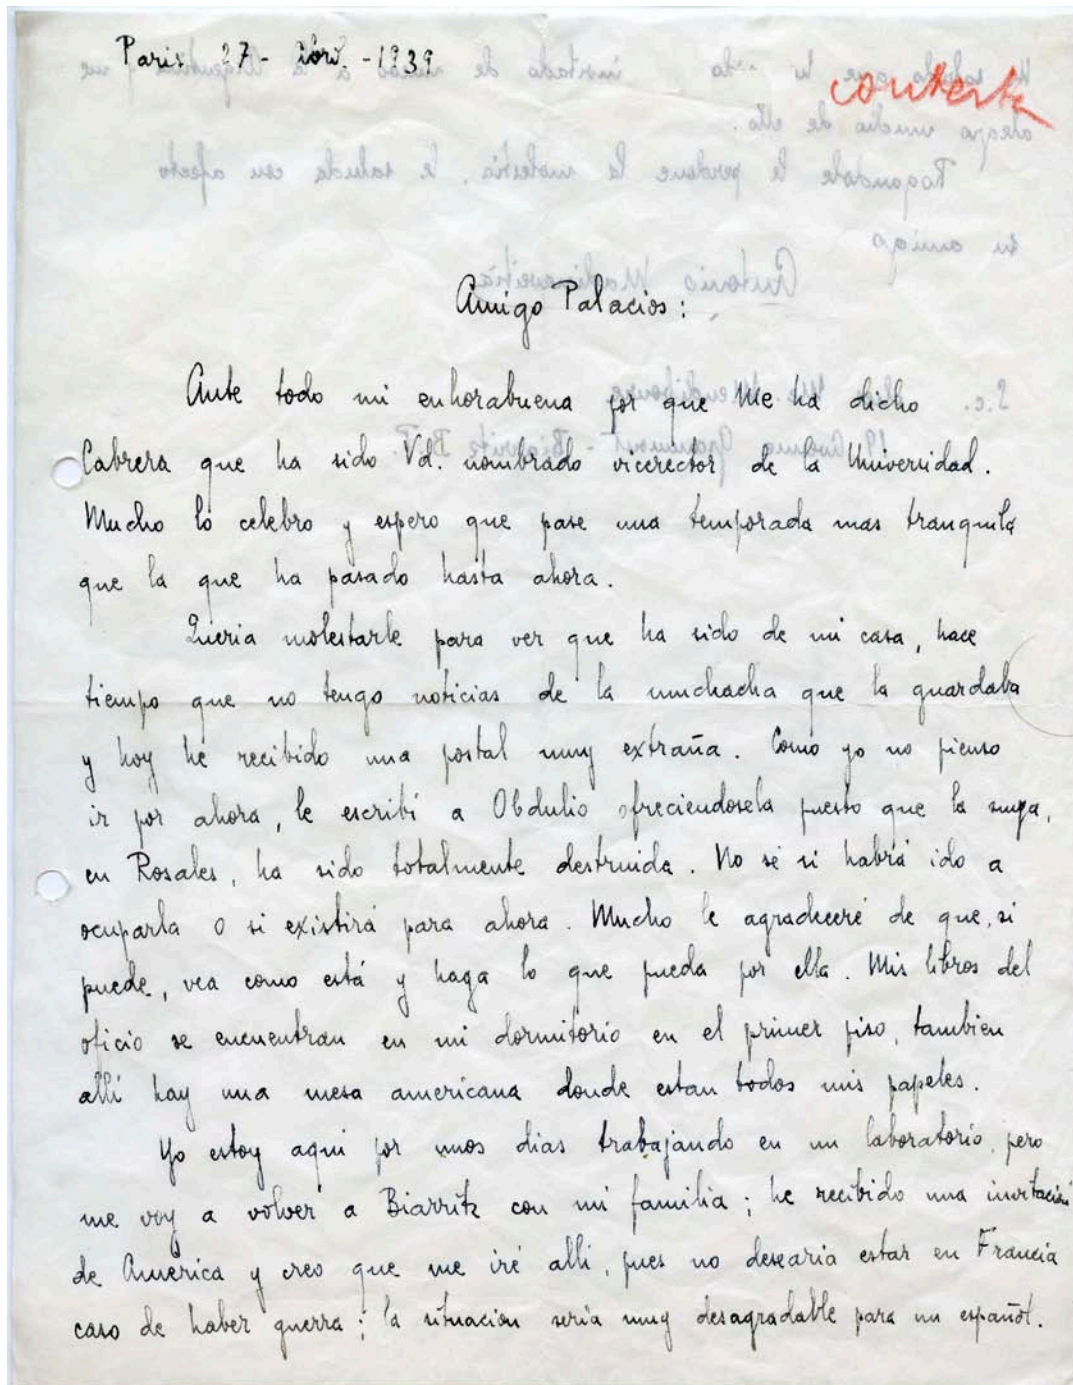 Paris 27 - Abril. - 1939
contesté
Amigo Palacios:
Ante todo mi enhorabuena por que me ha dicho
Cabrera que ha sido Vd. nombrado vicerector de la Universidad.
Mucho lo celebro y espero que pase una temporada mas tranquila
que la que ha pasado hasta ahora.
Queria molestarle para ver que ha sido de mi casa, hace
tiempo que no tengo noticias de la muchacha que la guardaba
y hoy he recibido una postal muy extraña. Como yo no pienso
ir por ahora, le escribí a Obdulio ofreciendosela puesto que la suya,
en Rosales, ha sido totalmente destruida. No sé si habrá ido a
ocuparla o si existirá para ahora. Mucho le agradeceré de que, si
puede, vea como está y haga lo que pueda por ella. Mis libros del
oficio se encuentran en mi dormitorio en el primer piso, tambien
allí hay una mesa americana donde estan todos mis papeles.
Yo estoy aqui por unos dias trabajando en un laboratorio, pero
me voy a volver a Biarritz con mi familia; he recibido una invitación
de América y creo que me iré alli, pues no desearia estar en Francia
caso de haber guerra; la situacion sería muy desagradable para un español.